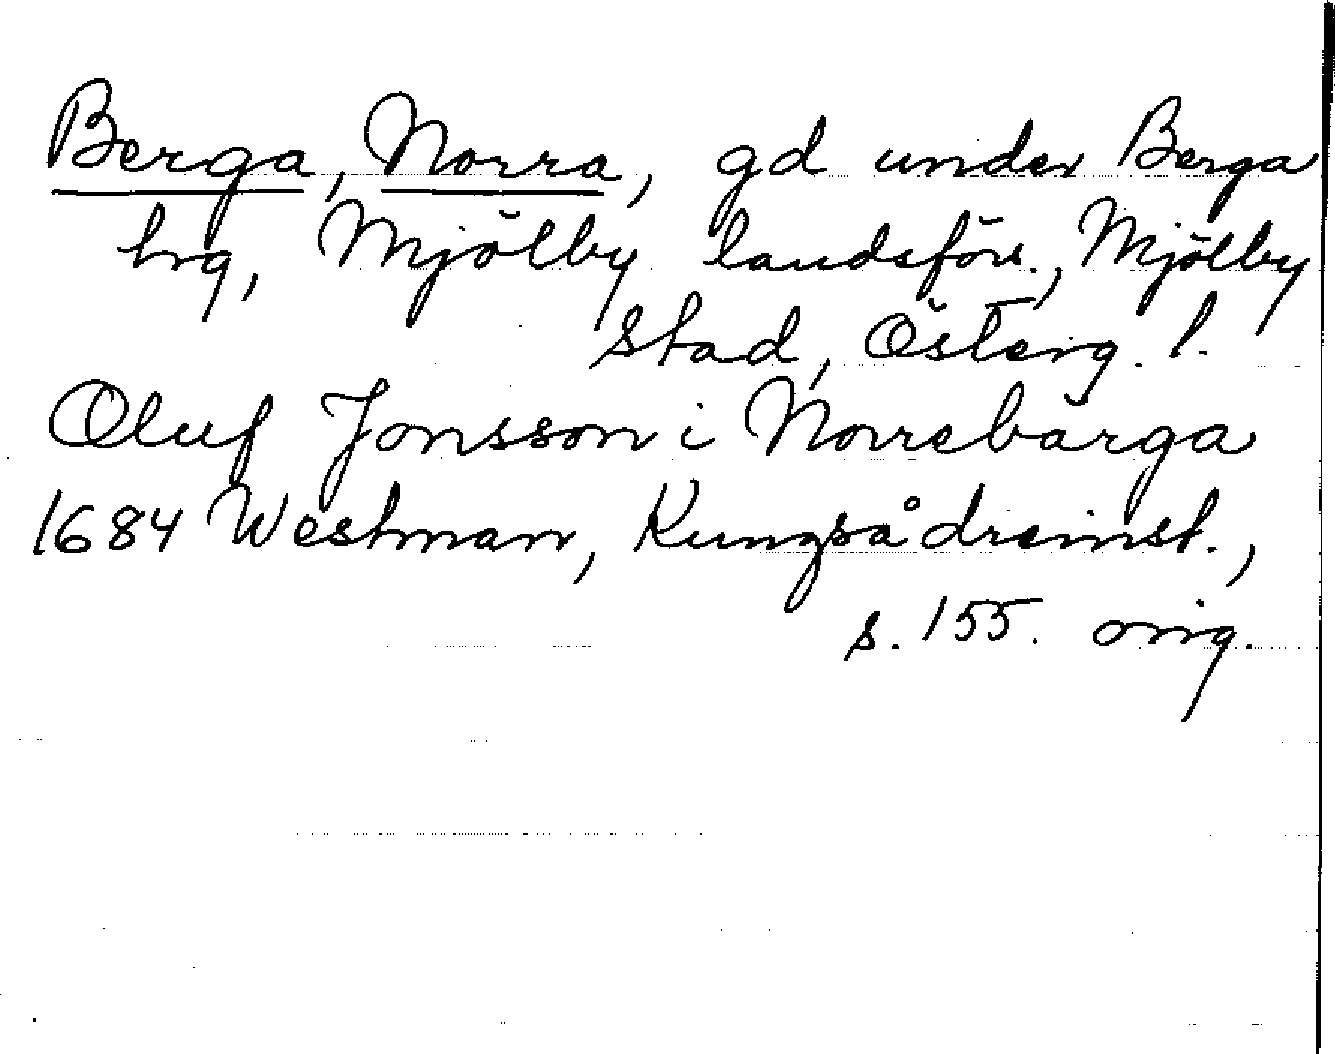 Berga, Norra, gd under Berga
hrg, Mjölby landsförs., Mjölby
stad, Österg. l.
Oluf Jonsson i Norrebärga
1684 Westman, Kungsådreinst.,
s. 155. orig.